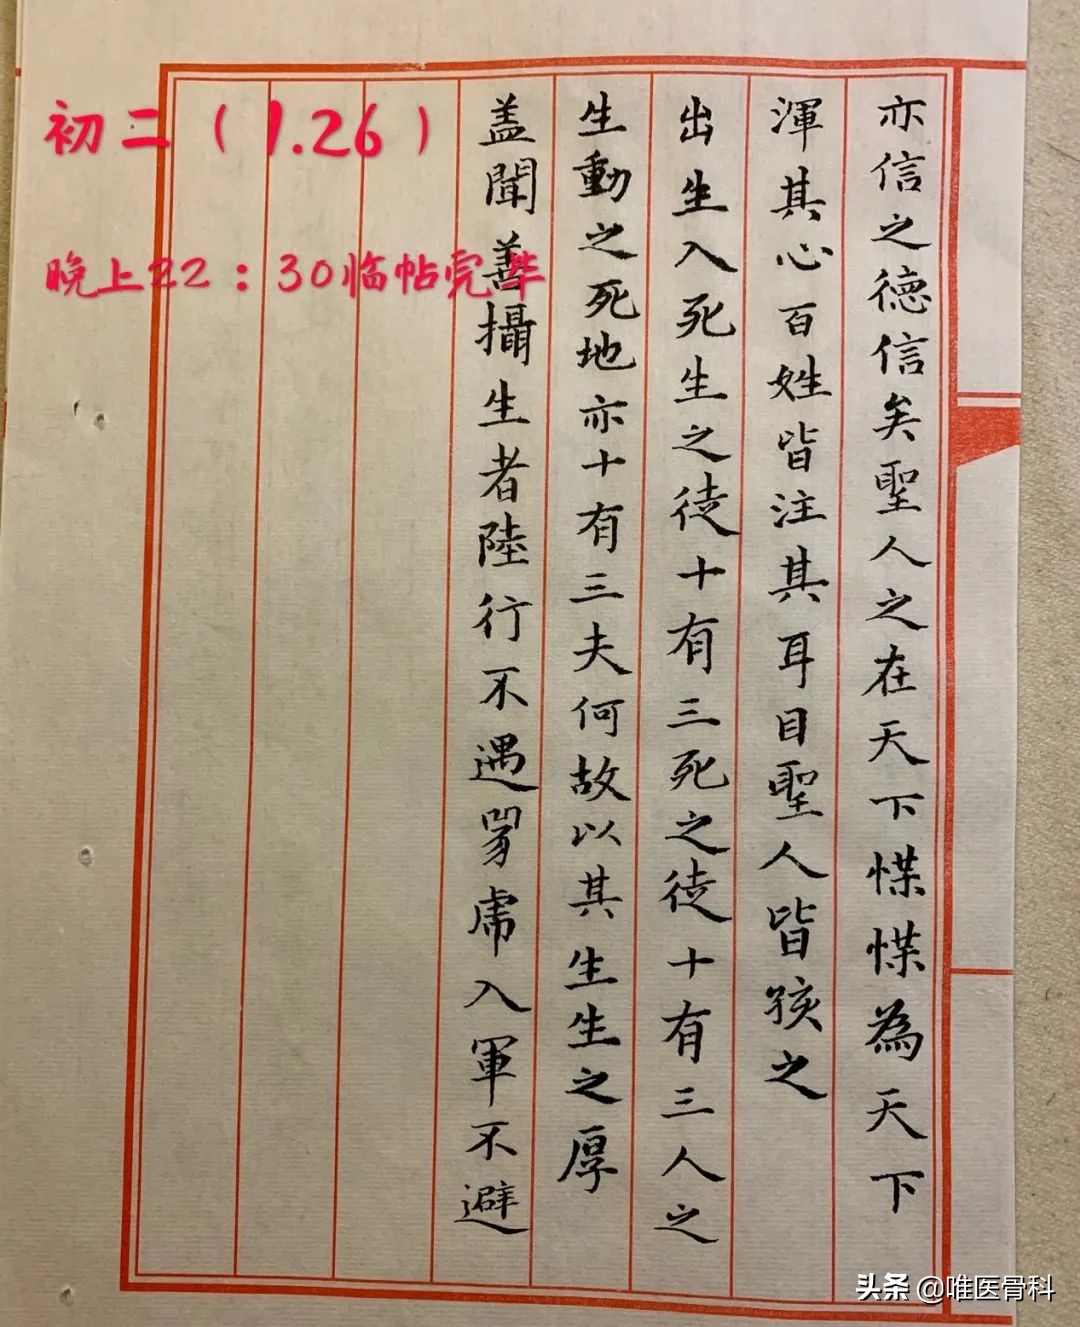 亦信之德信矣聖人之在天下惵惵為天下
渾其心百姓皆注其耳目聖人皆孩之
出生入死生之徒十有三死之徒十有三人之
生動之死地亦十有三夫何故以其生生之厚
盖聞善攝生者陸行不遇兕虎入軍不避
初二（1.26）
晚上22：30临帖完毕
头条@唯医骨科